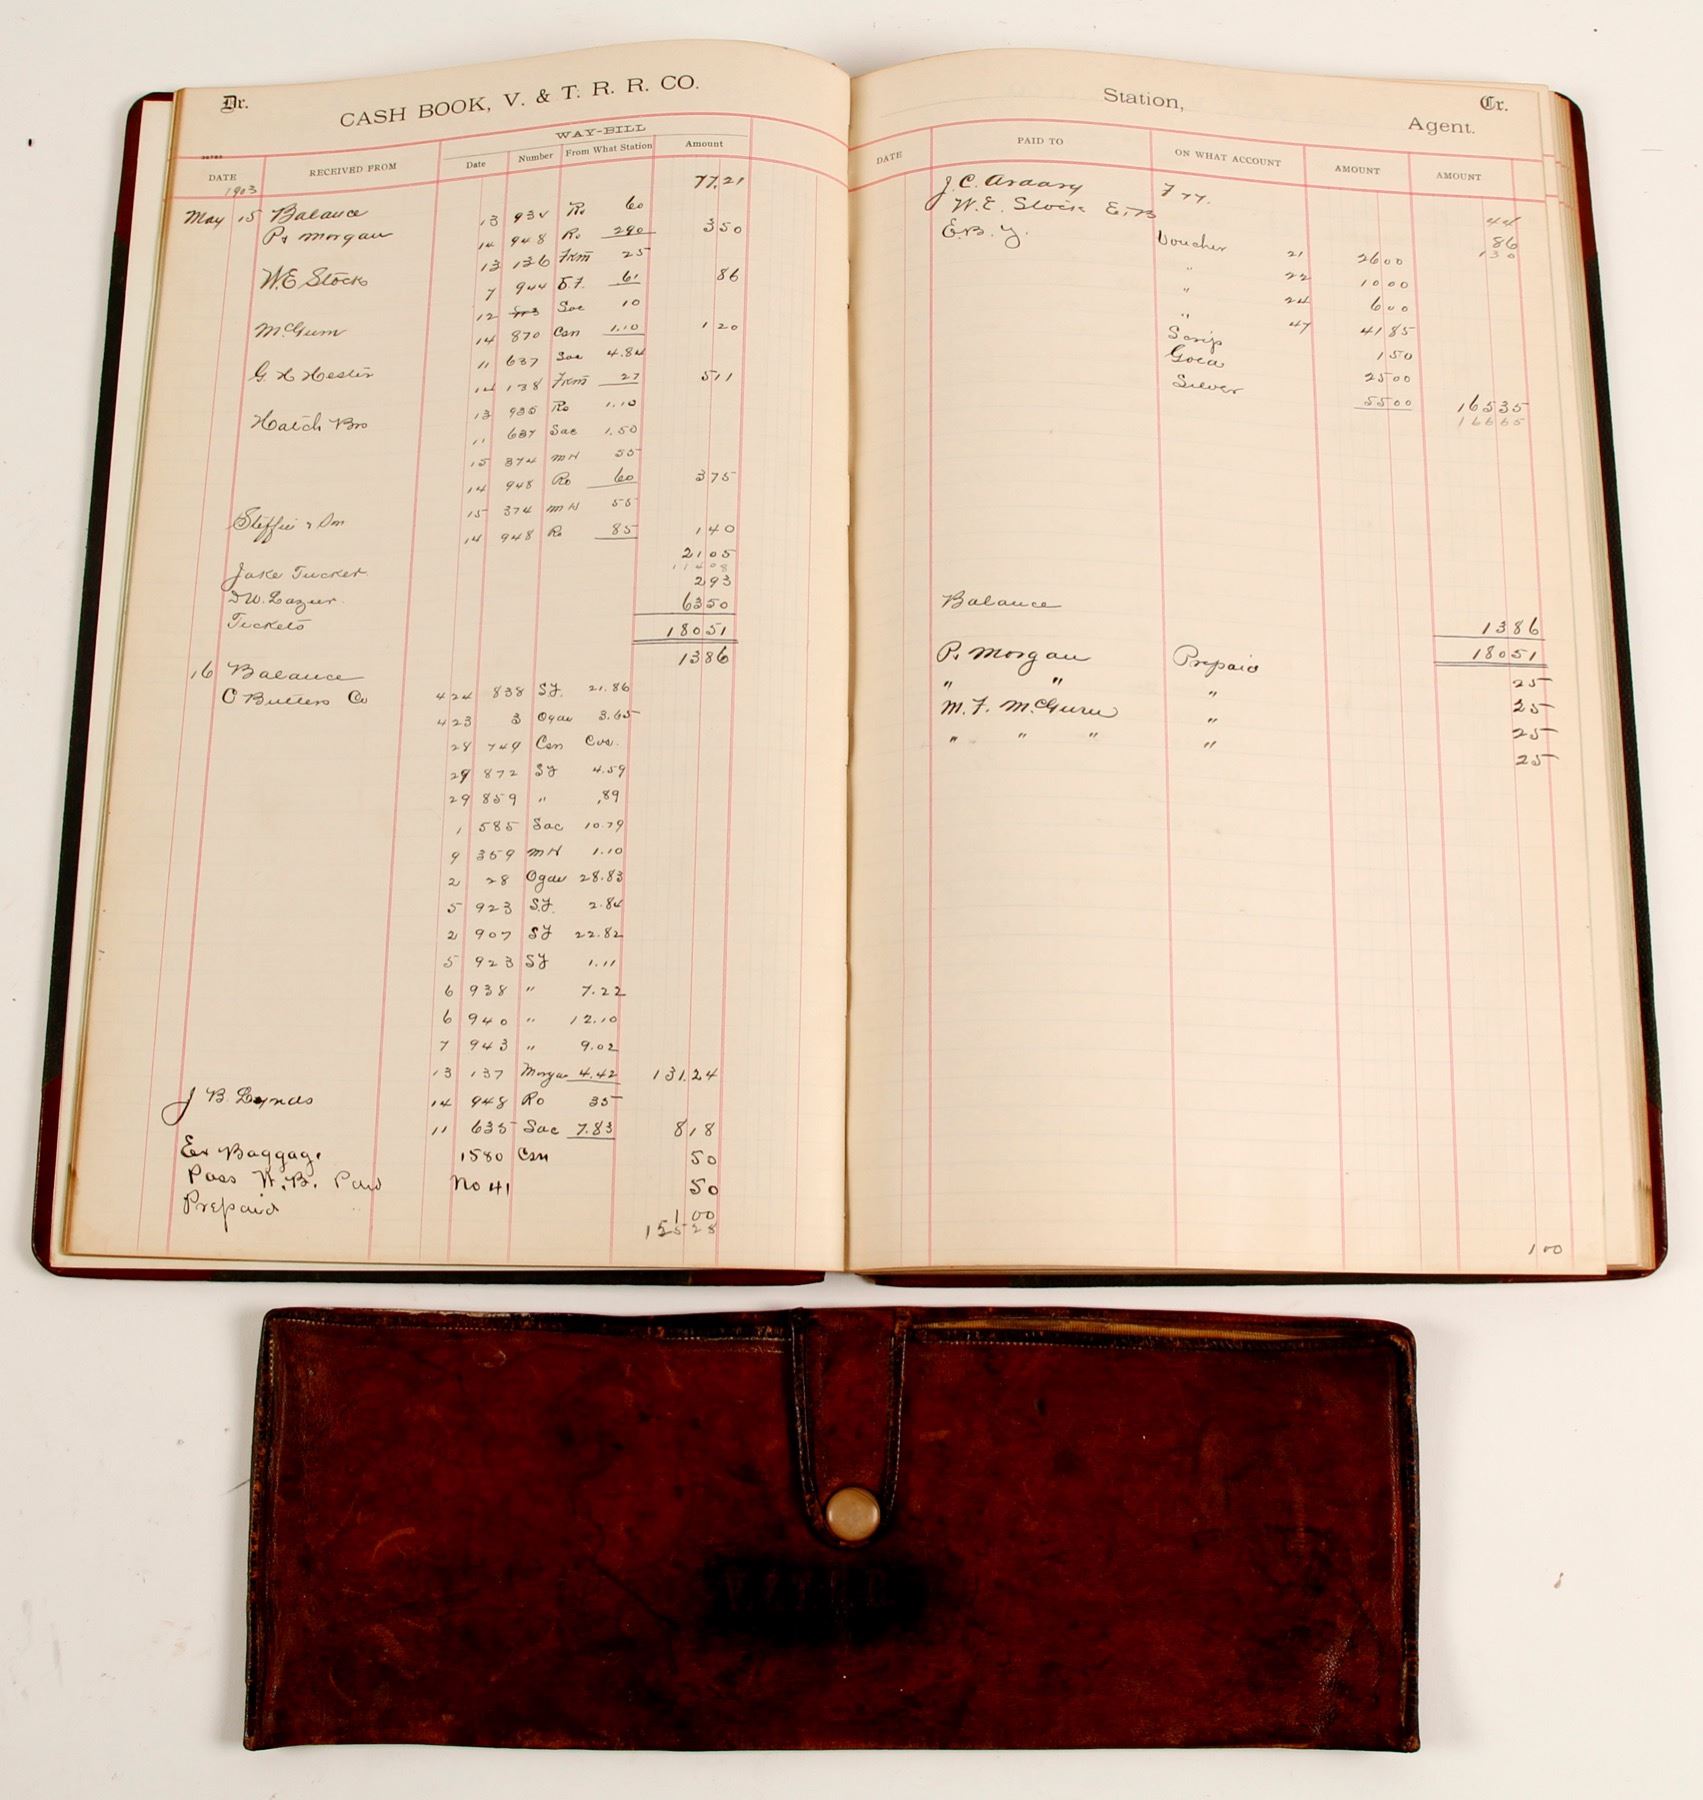 Dr.
CASH BOOK, V. & T. R. R. CO.
WAY-BILL
DATE RECEIVED FROM Date Number From What Station Amount
1903
May 15 Balance 77.21
13 934 Ro 60
P. Morgan 14 948 Ro 290 350
13 136 Frm 25
W.E Stock 7 944 S.F. 61 86
12 Sac 10
McGurn 14 870 Csn 1.10 1 20
11 637 Sac 4.84
G. H Hester 14 138 Frm 27 511
13 935 Ro 1.10
Hatch Bro 11 637 Sac 1.50
15 374 MH 55
14 948 Ro 60 375
15 374 MH 55
Steffie & Son 14 948 Ro 85 140
2105
11408
Jake Tucker 293
D W. Lazier 6350
Tickets 18051
16 Balance 1386
C Butters Co 424 838 S.F. 21.86
423 3 Ogan 3.65
28 749 Csn
29 872 SF 4.59
29 859 " ,89
1 585 Sac 10.79
9 359 MH 1.10
2 28 Ogan 28.83
5 923 S.F. 2.84
2 907 SF 22.82
5 923 SF 1.11
6 938 " 7.22
6 940 " 12.10
7 943 " 9.02
13 137 Morgan 4.42 131.24
J B. Lynds 14 948 Ro 35
11 635 Sac 7.83 818
Ex Baggage 1580 Csn 50
Pass W.B. Paid No 41 50
Prepaid 1 00
155 28
Station, Cr.
Agent.
DATE PAID TO ON WHAT ACCOUNT AMOUNT AMOUNT
J. C. 44
W. E. Stock E.B 86
E.B.Y. 130
Voucher 21 2600
" 22 1000
" 24 600
" 47 4185
Scrip 150
Gold 2500
Silver 5500 16535
16665
Balance 1386
18051
P. Morgan Prepaid 25
" " " 25
M. F. McGurn " 25
" " " " 25
1 00
V. & T. R. R.